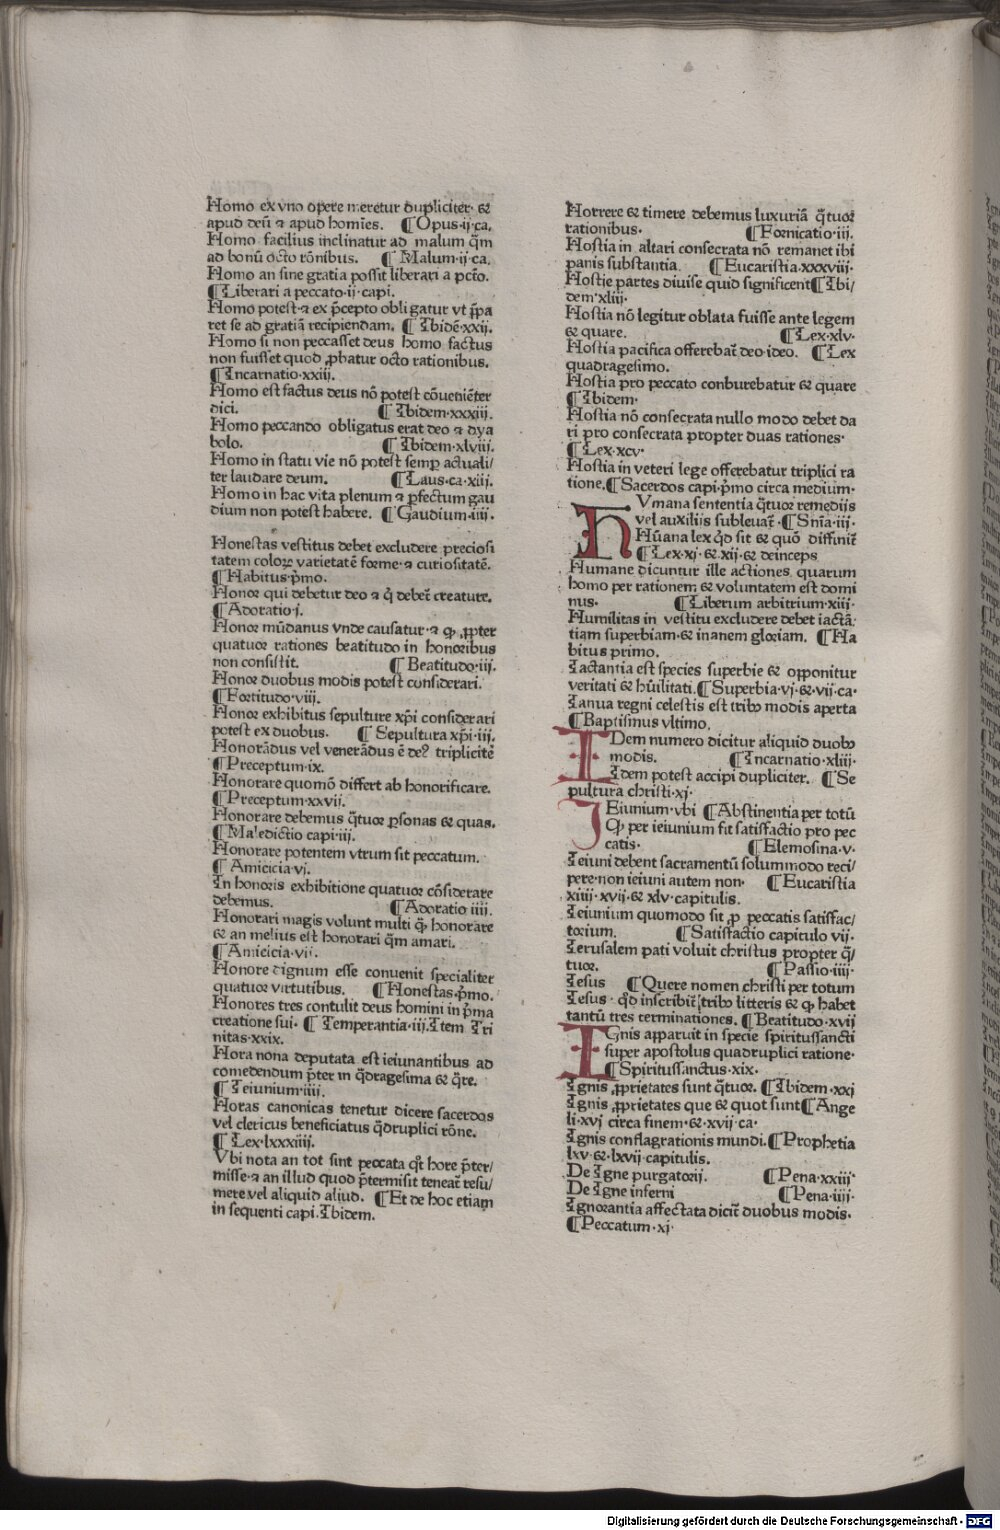 Homo ex vno opere meretur dupliciter· &
apud deū ⁊ apud homīes. ¶ Opus·ij·ca.
Homo facilius inclinatur ad malum q̄m
ad bonū octo rōnibus. ¶ Malum·ij·ca.
Homo an sine gratia possit liberari a pctō.
¶ Liberari a peccato·ij·capi.
Homo potest·⁊ ex p̄cepto obligatur vt p̄pa
ret se ad gratiā recipiendam. ¶ Ibidē·xxij.
Homo si non peccasset deus homo factus
non fuisset quod ꝓbatur octo rationibus.
¶ Incarnatio·xxiij.
Homo est factus deus nō potest cōueniēter
dici. ¶ Ibidem·xxxiij.
Homo peccando obligatus erat deo ⁊ dya
bolo. ¶ Ibidem·xlviij.
Homo in statu vie nō potest semꝑ actuali/
ter laudare deum. ¶ Laus·ca·xiij.
Homo in hac vita plenum ⁊ ꝑfectum gau
dium non potest habere. ¶ Gaudium·iiij.
Honestas vestitus debet excludere preciosi
tatem coloꝝ varietatē forme·⁊ curiositatē.
¶ Habitus·p̄mo.
Honor qui debetur deo ⁊ q̄ debet̄ creature.
¶ Adoratio·j.
Honor mūdanus vnde causatur·⁊ ꝙ ꝓpter
quatuor rationes beatitudo in honoribus
non consistit. ¶ Beatitudo·iij.
Honor duobus modis potest considerari.
¶ Fortitudo·viij.
Honor exhibitus sepulture xp̄i considerari
potest ex duobus. ¶ Sepultura xp̄i·iij.
Honorādus vel venerādus ē de? triplicitē
¶ Preceptum·ix.
Honorare quomō differt ab honorificare.
¶ Preceptum·xxvij.
Honorare debemus q̄tuor ꝑsonas & quas.
¶ Maledictio capi·iij.
Honorare potentem vtrum sit peccatum.
¶ Amicicia·vj.
In honoris exhibitione quatuor cōsiderare
debemus. ¶ Adoratio iiij.
Honorari magis volunt multi q̄ honorare
& an melius est honorari q̄m amari.
¶ Amicicia·vij.
Honore dignum esse conuenit specialiter
quatuor virtutibus. ¶ Honestas·p̄mo.
Honores tres contulit deus homini in p̄ma
creatione sui. ¶ Temperantia·iij.Item Tri
nitas·xxix.
Hora nona deputata est ieiunantibus ad
comedendum p̄ter in q̄dragesima & q̄re.
¶ Ieiunium·iiij.
Horas canonicas tenetur dicere sacerdos
vel clericus beneficiatus q̄druplici rōne.
¶ Lex·lxxxiiij.
Vbi nota an tot sint peccata qt̄ hore p̄ter/
misse·⁊ an illud quod p̄termisit teneat̄ resu/
mere vel aliquid aliud. ¶ Et de hoc etiam
in sequenti capi.Ibidem.
Horrere & timere debemus luxuriā q̄tuor
rationibus. ¶ Fornicatio·iij.
Hostia in altari consecrata nō remanet ibi
panis substantia. ¶ Eucaristia·xxxviij·
Hostie partes diuise quid significent ¶ Ibi/
dem·xliij·
Hostia nō legitur oblata fuisse ante legem
& quare. ¶ Lex·xlv·
Hostia pacifica offerebat̄ deo·ideo. ¶ Lex
quadragesimo.
Hostia pro peccato conburebatur & quare
¶ Ibidem·
Hostia nō consecrata nullo modo debet da
ri pro consecrata propter duas rationes·
¶ Lex·xcv·
Hostia in veteri lege offerebatur triplici ra
tione.¶ Sacerdos capi·p̄mo circa medium·
HVmana sententia q̄tuor remedijs
vel auxilijs subleuat̄ ·¶ Snīa·iij·
Hūana lex q̄d sit & quō diffinit̄
¶ Lex·xj·&·xij·& deinceps
Humane dicuntur ille actiones quarum
homo per rationem & voluntatem est domi
nus· ¶ Liberum arbitrium·xiij·
Humilitas in vestitu excludere debet iactā/
tiam superbiam·& inanem gloriam. ¶ Ha
bitus primo.
Iactantia est species superbie & opponitur
veritati & hūilitati.¶ Superbia·vj·&·vij·ca·
Ianua regni celestis est tribꝫ modis aperta
¶ Baptismus vltimo.
IDem numero dicitur aliquid duobꝫ
modis. ¶ Incarnatio·xliij·
Idem potest accipi dupliciter. ¶ Se
pultura christi·xj·
IEiunium·vbi ¶ Abstinentia per totū
Ꝙ per ieiunium fit satisfactio pro pec
catis· ¶ Elemosina·v·
Ieiuni debent sacramentū solummodo reci/
pere·non ieiuni autem non· ¶ Eucaristia
xiiij·xvij·& xlv·capitulis.
Ieiunium quomodo sit ꝓ peccatis satisfac/
torium. ¶ Satisfactio capitulo vij·
Ierusalem pati voluit christus propter q̄/
tuor. ¶ Passio·iiij·
Iesus ¶ Quere nomen christi per totum
Iesus· q̄d inscribit̄ tribꝫ litteris & ꝙ habet
tantū tres terminationes. ¶ Beatitudo·xvij
IGnis apparuit in specie spiritussancti
super apostolus quadruplici ratione·
¶ Spiritussanctus·xix·
Ignis ꝓprietates sunt q̄tuor. ¶ Ibidem·xxj
Ignis ꝓprietates que & quot sunt ¶ Ange
li·xvj circa finem·&·xvij·ca·
Ignis conflagrationis mundi.¶ Prophetia
lxv·&·lxvij·capitulis.
De Igne purgatorij. ¶ Pena·xxiij·
De Igne inferni ¶ Pena·iiij·
Ignorantia affectata dicit̄ duobus modis.
¶ Peccatum·xj·
Digitalisierung gefördert durch die Deutsche Forschungsgemeinschaft - DFG